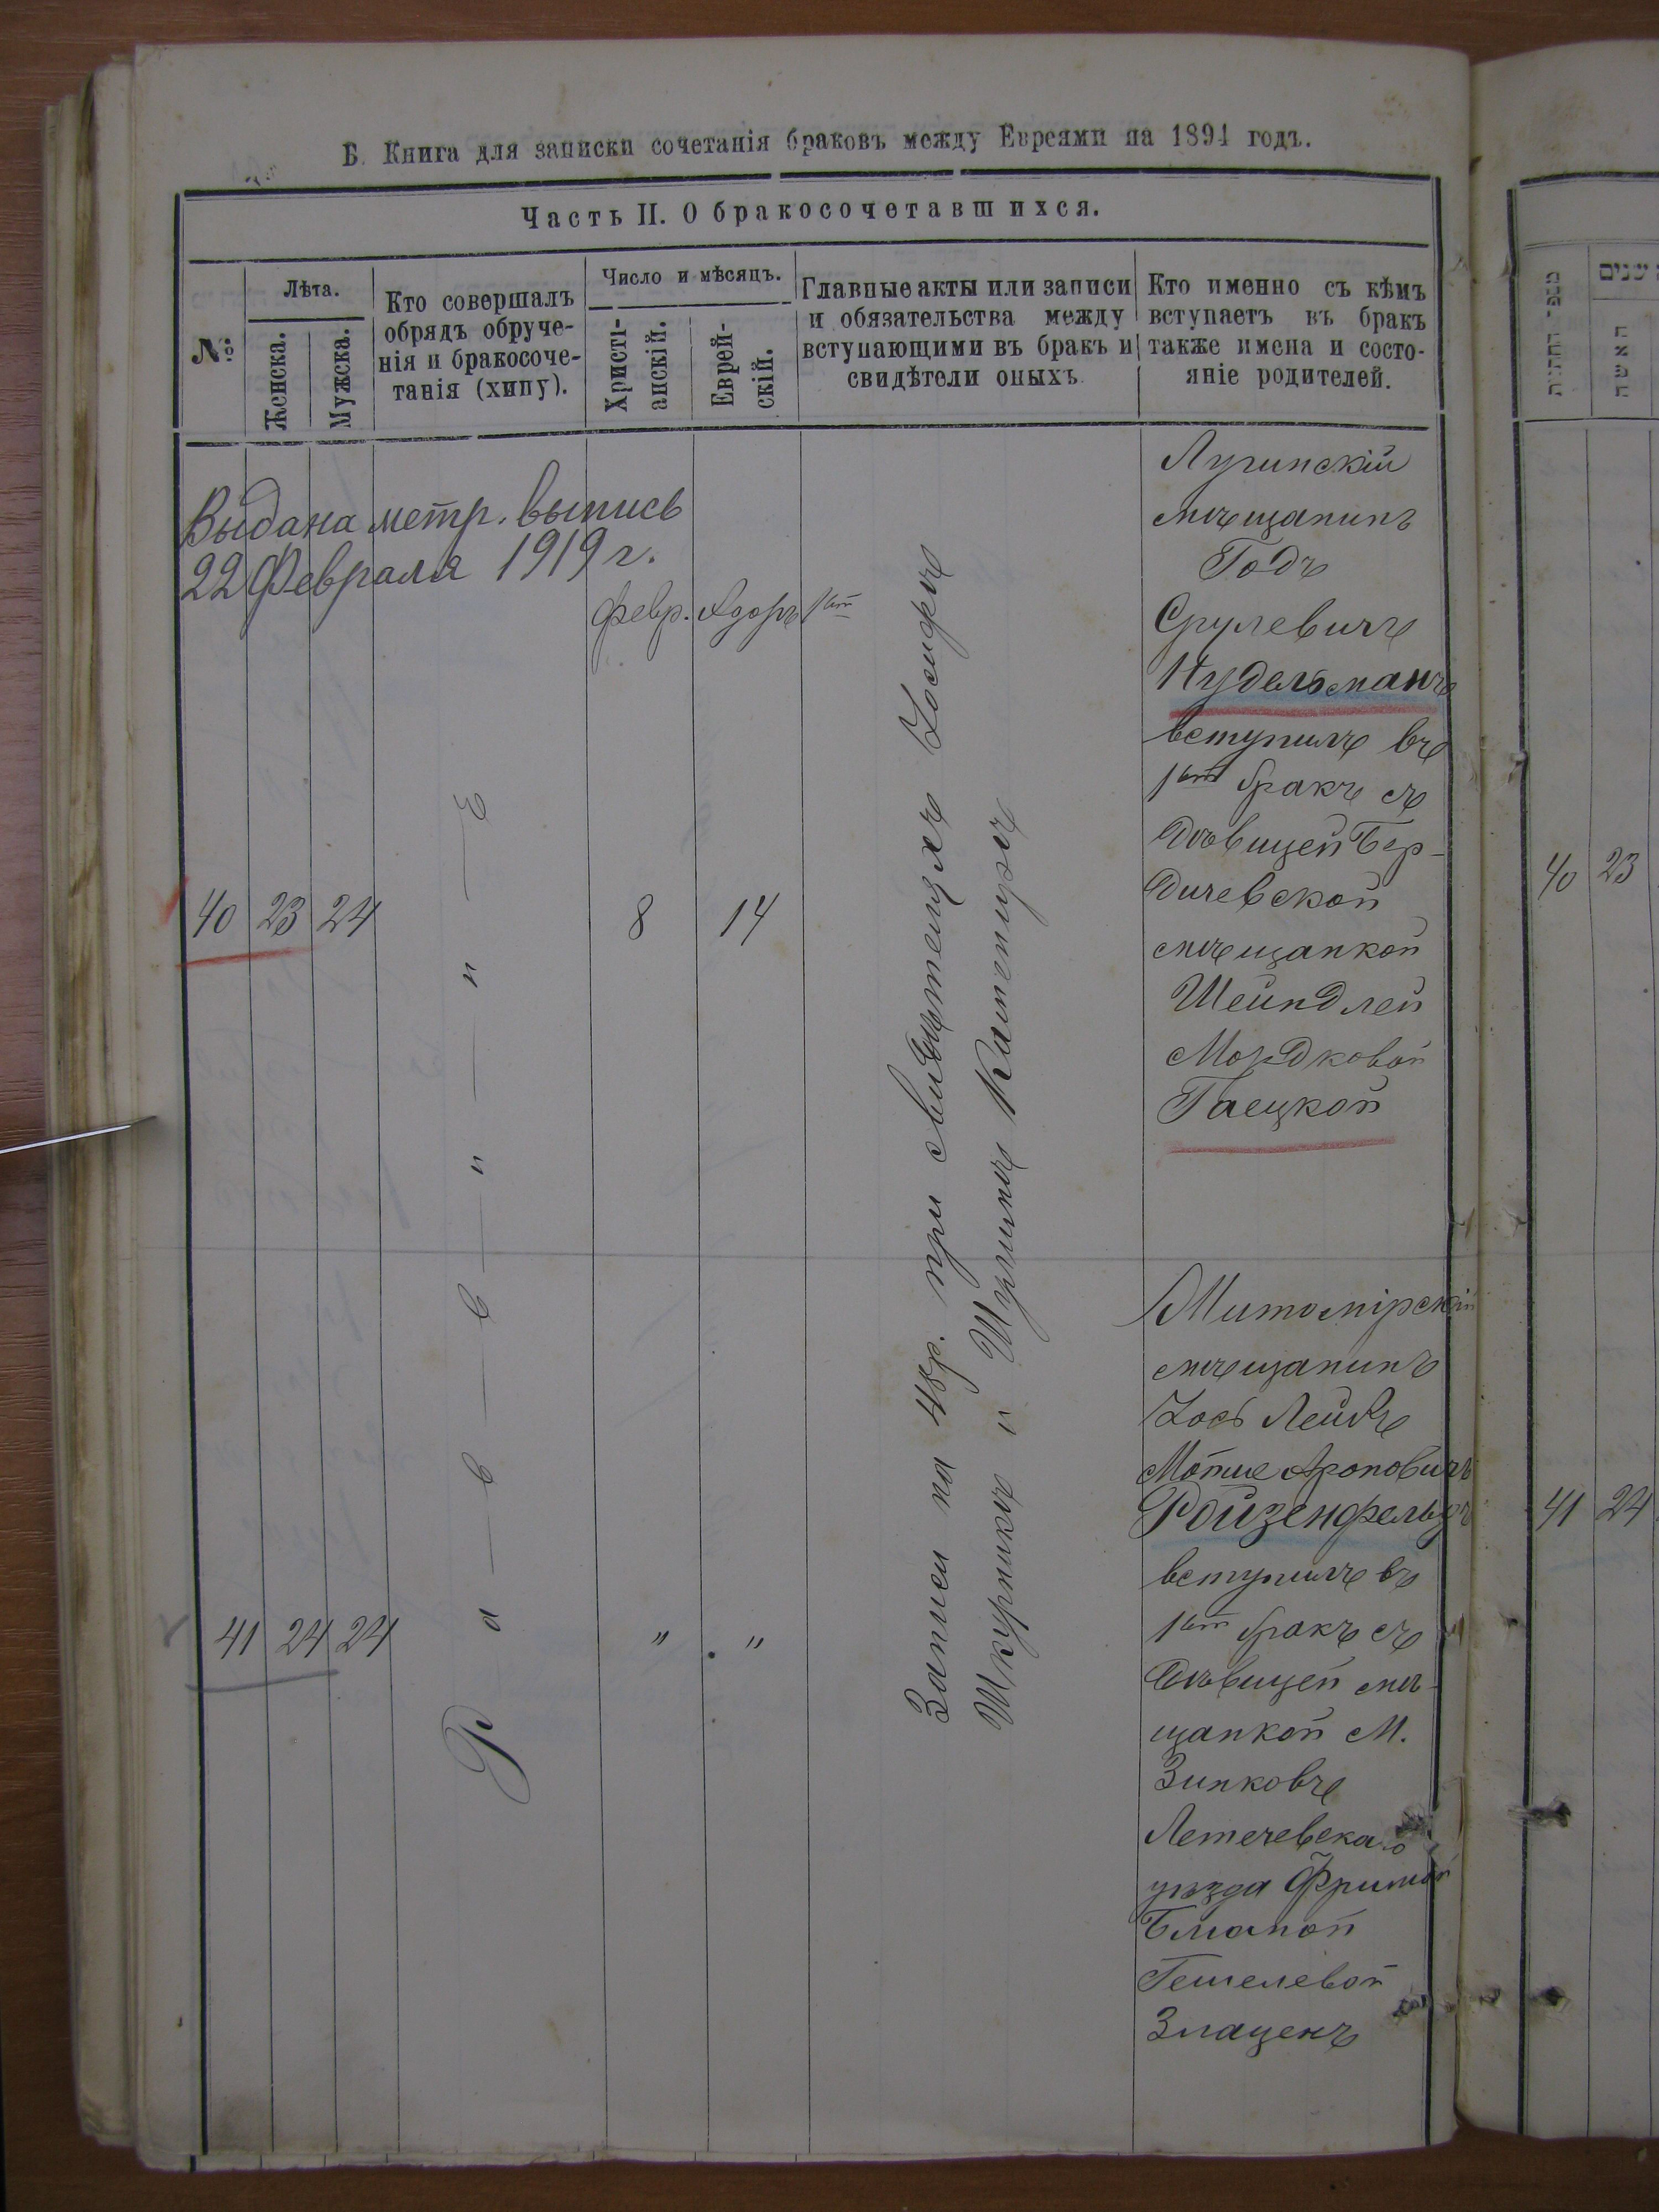 Б. Книга для записки сочетанія браковъ между Евреями на 1894 годъ.
Часть II. О бракосочетавшихся.
№
Лѣта.
Женска.
Мужска.
Кто совершалъ
обрядъ обруче-
нія и бракосоче-
танія (хипу).
Число и мѣсяцъ.
Христі-
анскій.
Еврей-
скій.
Главные акты или записи
и обязательства между
вступающими въ бракъ и
свидѣтели оныхъ.
Кто именно съ кѣмъ
вступаетъ въ бракъ
также имена и состо-
яніе родителей.
Выдана метр. выпись
22 Февраля 1919 г.
февр. Адаръ 1ый
40 23 24
8 14
Раввинъ
Записи на 48 р. при свидѣтеляхъ Іосифѣ
Шкурникѣ и
Лугинскій
мѣщанинъ
Годъ
Срулевичъ
Нудельманъ
вступилъ въ
1ый бракъ съ
дѣвицей Бер-
дичевской
мѣщанкой
Шейндлей
Мордковой
Гаецкой
41 24 24
" "
Житомірскій
мѣщанинъ
Іось Лейбъ
Мотье Ароновичъ
Ройзенфельдъ
вступилъ въ
1ый бракъ съ
дѣвицей мѣ-
щанкой М.
Зинковъ
Летичевскаго
уѣзда Фримой
Гешелевой
40 23
41 24